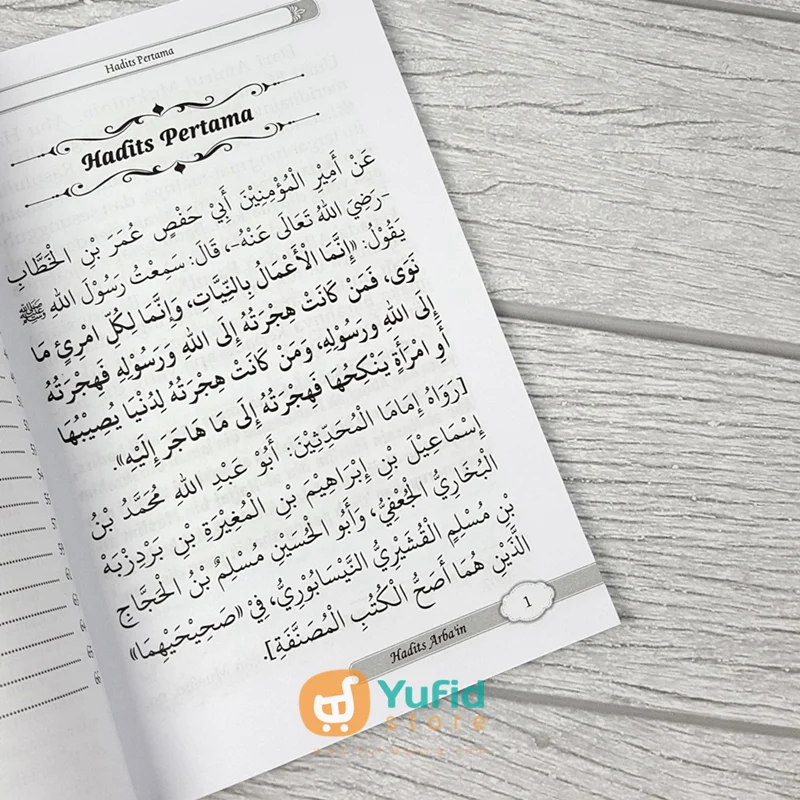 Hadits Pertama
Hadits Pertama
عَنْ أَمِيْرِ الْمُؤْمِنِيْنَ أَبِيْ حَفْصٍ عُمَرَ بْنِ الْخَطَّابِ
-رَضِيَ اللهُ تَعَالَى عَنْهُ-، قَالَ: سَمِعْتُ رَسُوْلَ اللهِ ﷺ
يَقُوْلُ: «إِنَّمَا الْأَعْمَالُ بِالنِّيَّاتِ، وَإِنَّمَا لِكُلِّ امْرِئٍ مَا
نَوَى، فَمَنْ كَانَتْ هِجْرَتُهُ إِلَى اللهِ وَرَسُوْلِهِ فَهِجْرَتُهُ
إِلَى اللهِ وَرَسُوْلِهِ، وَمَنْ كَانَتْ هِجْرَتُهُ لِدُنْيَا يُصِيْبُهَا
أَوِ امْرَأَةٍ يَنْكِحُهَا فَهِجْرَتُهُ إِلَى مَا هَاجَرَ إِلَيْهِ».
[رَوَاهُ إِمَامَا الْمُحَدِّثِيْنَ: أَبُوْ عَبْدِ اللهِ مُحَمَّدُ بْنُ
إِسْمَاعِيْلَ بْنِ إِبْرَاهِيْمَ بْنِ الْمُغِيْرَةِ بْنِ بَرْدِزْبَهْ
الْبُخَارِيُّ الْجُعْفِيُّ، وَأَبُو الْحُسَيْنِ مُسْلِمُ بْنُ الْحَجَّاجِ
بْنِ مُسْلِمٍ الْقُشَيْرِيُّ النَّيْسَابُوْرِيُّ، فِيْ «صَحِيْحَيْهِمَا»
الَّذَيْنِ هُمَا أَصَحُّ الْكُتُبِ الْمُصَنَّفَةِ].
Hadits Arba'in 1
Yufid
store